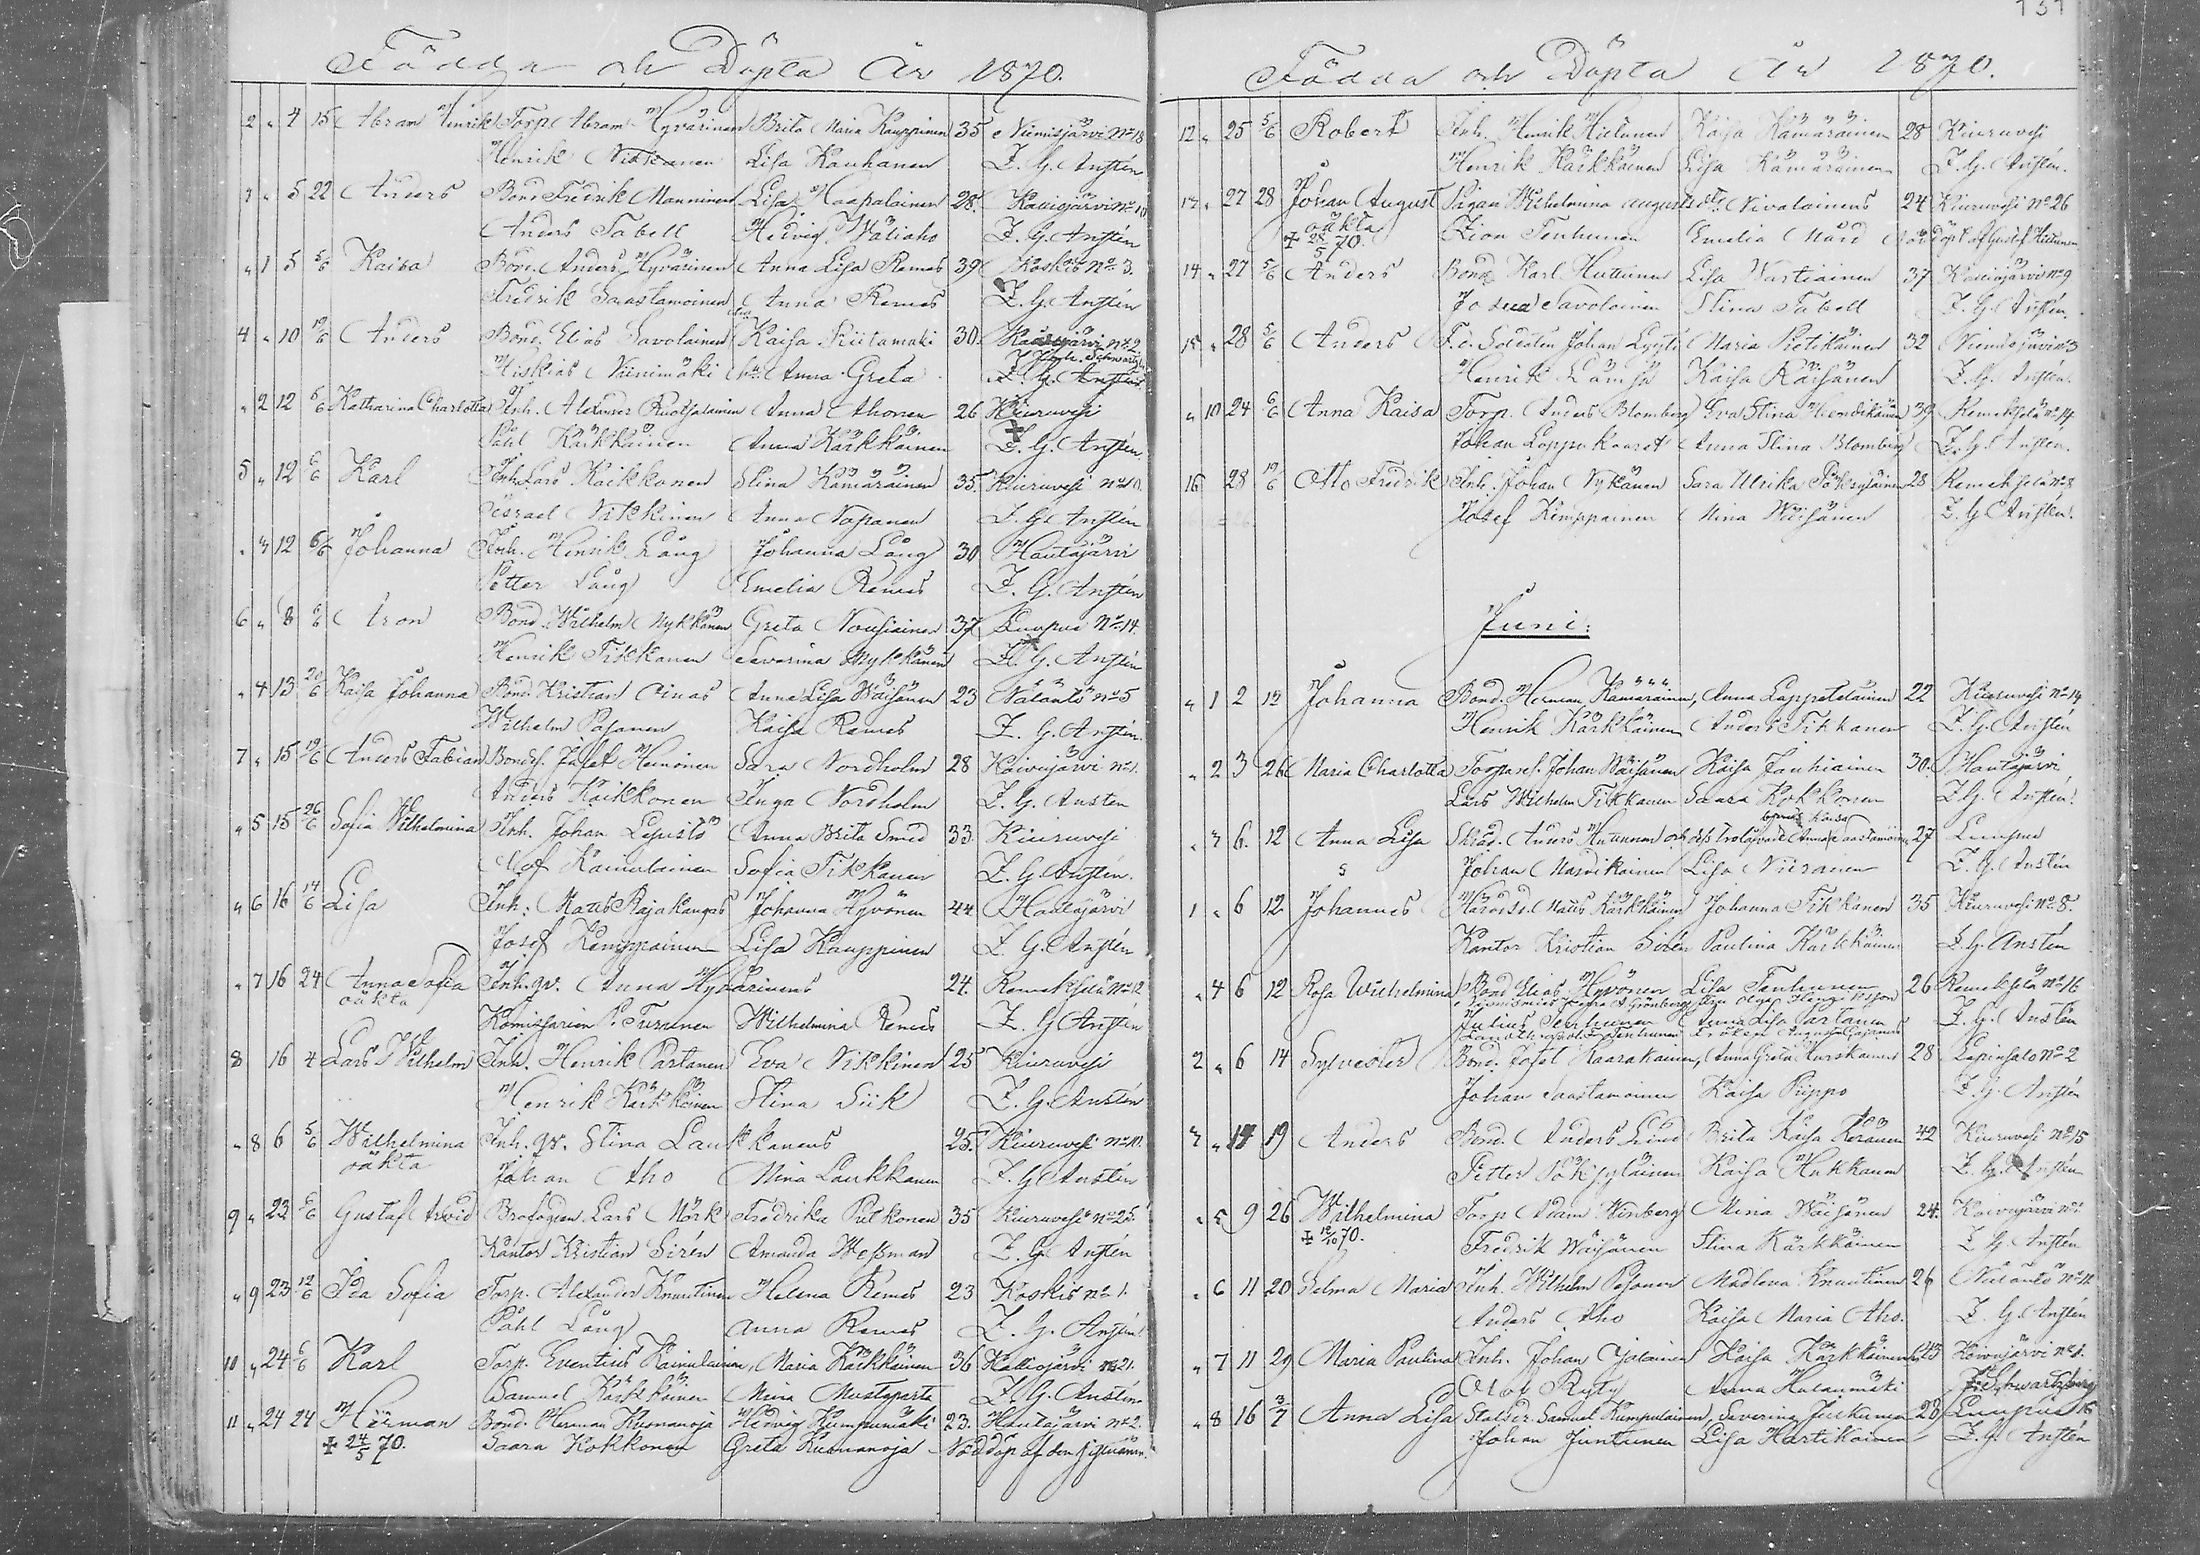 Födda och Döpta År 1870.
2 " 4 15 Abram Henrik Torp. Abram Hyvärinen Brita Maria Kauppinen 35 Niemisjärvi No 18
Henrik Niskanen Lisa Kauhanen Z. G. Anstén
3 " 5 22 Anders Bond. Fredrik Manninen Lisa Haapalainen 28. Kalliojärvi No 10
Anders Tabell Hedvig Wäliaho Z. G. Anstén
" 1 5 5/6 Kaisa Bond. Anders Hyvärinen Anna Lisa Remes 39 Koskis No 3.
Fredrik Saastamoinen Anna Remes Z. G. Anstén
4 " 10 19/6 Anders Bond. Elias Savolainen Kaisa Niitamäki 30.
Hiskias Niinimäki h:u Anna Greta Z. G. Anstén
" 2 12 6/6 Katharina Charlotta Inh. Alexander Ruotsalainen Anna Ahonen 26 Kiuruvesi
Påhl Kärkkäinen Anna Kärkkäinen Z. G. Anstén
5 " 12 6/6 Karl Inh. Lars Kaikkonen Stina Kämäräinen 35. Kiuruvesi No 10.
Israel Nikkinen Anna Napanen Z. G. Anstén
" 3 12 6/6 Johanna Inh. Henrik Lång Johanna Lång 30 Hautajärvi
Petter Lång Emelia Remes Z. G. Anstén
6 " 8 6/6 Aron Bond. Wilhelm Nykkänen Greta Nousiainen 37 Luupue No 14.
Henrik Tikkanen Severina Nykkänen Z. G. Anstén
" 4 13 20/6 Kaisa Johanna Bond. Kristian Ainas Anna Lisa Wäisänen 23 Näläntö No 5
Wilhelm Posanen Kaisa Remes Z. G. Anstén.
7 " 15 19/6 Anders Fabian Bonds. Jafet Heinonen Sara Nordholm 28 Koivujärvi No 1.
Anders Kaikkonen Inga Nordholm Z. G. Austen
" 5 15 26/6 Sofia Wilhelmina Inh. Johan Lejusto Anna Brita Smed 33. Kiuruvesi
Olof Kainulainen Sofia Tikkanen Z. G. Anstén.
" 6 16 14/6 Lisa Inh: Mats Rajakangas Johanna Hyvönen 44. Hautajärvi
Josef Kemppainen Lisa Kauppinen Z. G. Anstén
" 7 16 24 Anna Sofia Inh. qv. Anna Hyvärinens 24. Remeksjelä No 12
oäkta
Komissarien P. Turunen Wilhelmina Remes Z. G Anstén
8 16 4 Lars Wilhelm Inh. Henrik Partanen Eva Nikkinen 25 Kiuruvesi
Henrik Kärkkäinen Stina Siik Z. G. Austén
" 8 6 5/6 Wilhelmina Inh. qv. Stina Laukkanens 25. Kiuruvesi No 10.
oäkta Johan Aho Mina Laukkanen Z. G. Austén
9 " 23 6/6 Gustaf Arvid Brofogden Lars Mörk Fredrika Pulkonen 35 Kiuruvesi No 25.
Kantor Kristian Sirén Amanda Wessman Z. G. Anstén
" 9 23 12/6 Ida Sofia Torp. Alexander Knuutinen Helena Remes 23 Koskis No 1.
Påhl Lång Anna Remes Z. G. Anstén
10 " 24 6/6 Karl Torp. Eventius Kainulainen Maria Kärkkäinen 36 Kalliojärvi No 21.
Samuel Kärkkäinen Mina Mustaparta Z. G. Austén
11 " 24 24 Herman Bond. Herman Kusmanoja Hedvig Kumpumäki 23. Hautajärvi No 2.
24/5 70. Saara Kokkonen Greta Kusmanoja
Födda och Döpta År 1870.
12 " 25 5/6 Robert Inh. Henrik Hiltunen Kaisa Kämäräinen 28 Kiuruvesi
Henrik Kärkkäinen Lisa Kämäräinen Z. G. Anstén.
13 " 27 28 Johan August Pigan Wilhelmina Augusts dtr. Nivalainens 24 Kiuruvesi No 26
oäkta 28/5 70 Zion Tenhunen Emelia Mård Nöddöpt af Gustaf Hiltunen
14 " 27 5/6 Anders Bond. Karl Huttunen Lisa Wartiainen 37 Kalliojärvi No 9
Josua Savolainen Stina Tabell Z. G. Austén.
15 " 28 5/6 Anders F.d. Soldaten Johan Lyyti Maria Piotikäinen 32 Niemisjärvi No 3
Henrik Lämsä Kaisa Räisänen Z. G. Anstén.
" 10 24 6/6 Anna Kaisa Torp. Anders Blomberg Eva Stina Mendikäinen 39 Remeksjelä No 14.
Johan Loppukaarst Anna Stina Blomberg Z. G. Anstén.
16 28 19/6 Otto Fredrik Inh. Johan Nykänen Sara Ulrika Pöksyläinen 28 Remeksjelä No 3
Josef Kemppainen Mina Wäisänen Z. G. Anstén.
Juni:
" 1 2 12 Johanna Bond. Herman Kämäräinen, Anna Lappeteläinen 22 Kiuruvesi No 14
Henrik Kärkkäinen Anders Tikkanen Z. G. Anstén
" 2 3 26 Maria Charlotta Torpares. Johan Wäisänen Kaisa Jauhiainen 30. Hautajärvi
Lars Wilhelm Tikkanen Saara Kokkonen Z. G. Anstén.
" 3 6. 12 Anna Lisa Skräd. Anders Hutunen och dess trolofvade Anna Saastamoinen 27 Luupue
Johan Mardikainen Lisa Niiranen Z. G. Austén
1 " 6 12 Johannes Häradsd. Mats Kärkkäinen Johanna Tikkanen 35 Kiuruvesi No 8.
Kantor Kristian Sirén Paulina Kärkkäinen Z. G. Anstén
" 4 6 12 Rosa Wilhelmina Bond. Elias Hyvönen Lisa Tenhunen 26 Remeksjelä No 16
Julius Tenhunen Anna Lisa Partanen Z. G. Austén
2 " 6 14 Sylvester Bond. Josef Kaarakainen, Anna Greta Turskainen 28 Lapinsalo No 2
Johan Saastamoinen Kaisa Piippo Z. G. Anstén
3 " 14 19 Anders Bond. Anders Lind Brita Kaisa Keränen 42 Kiuruvesi No 15
Petter Pöksyläinen Kaisa Hukkanen Z. G. Anstén
" 5 9 26 Wilhelmina Torp. Adam Winberg Mina Wäisänen 24. Koivujärvi No 1.
12/10 70. Fredrik Wäisänen Stina Kärkkäinen Z. G. Anstén
" 6 11 20 Selma Maria Inh. Wilhelm Posanen Madlena Knuutinen 26 Näläntö No 12
Anders Aho Kaisa Maria Aho. Z. G. Anstén
" 7 11 29 Maria Paulina Inh. Johan Ojalainen Kaisa Kärkkäinen 43 Koivujärvi No 1.
Olof Ryty Anna Hutaumäki Z. Schwartzberg
" 8 16 3/7 Anna Lisa Statsdr. Samuel Kumpulainen, Severina Juskunen 28 Luupue 16
Johan Juntunen Lisa Hartikainen Z. G. Anstén